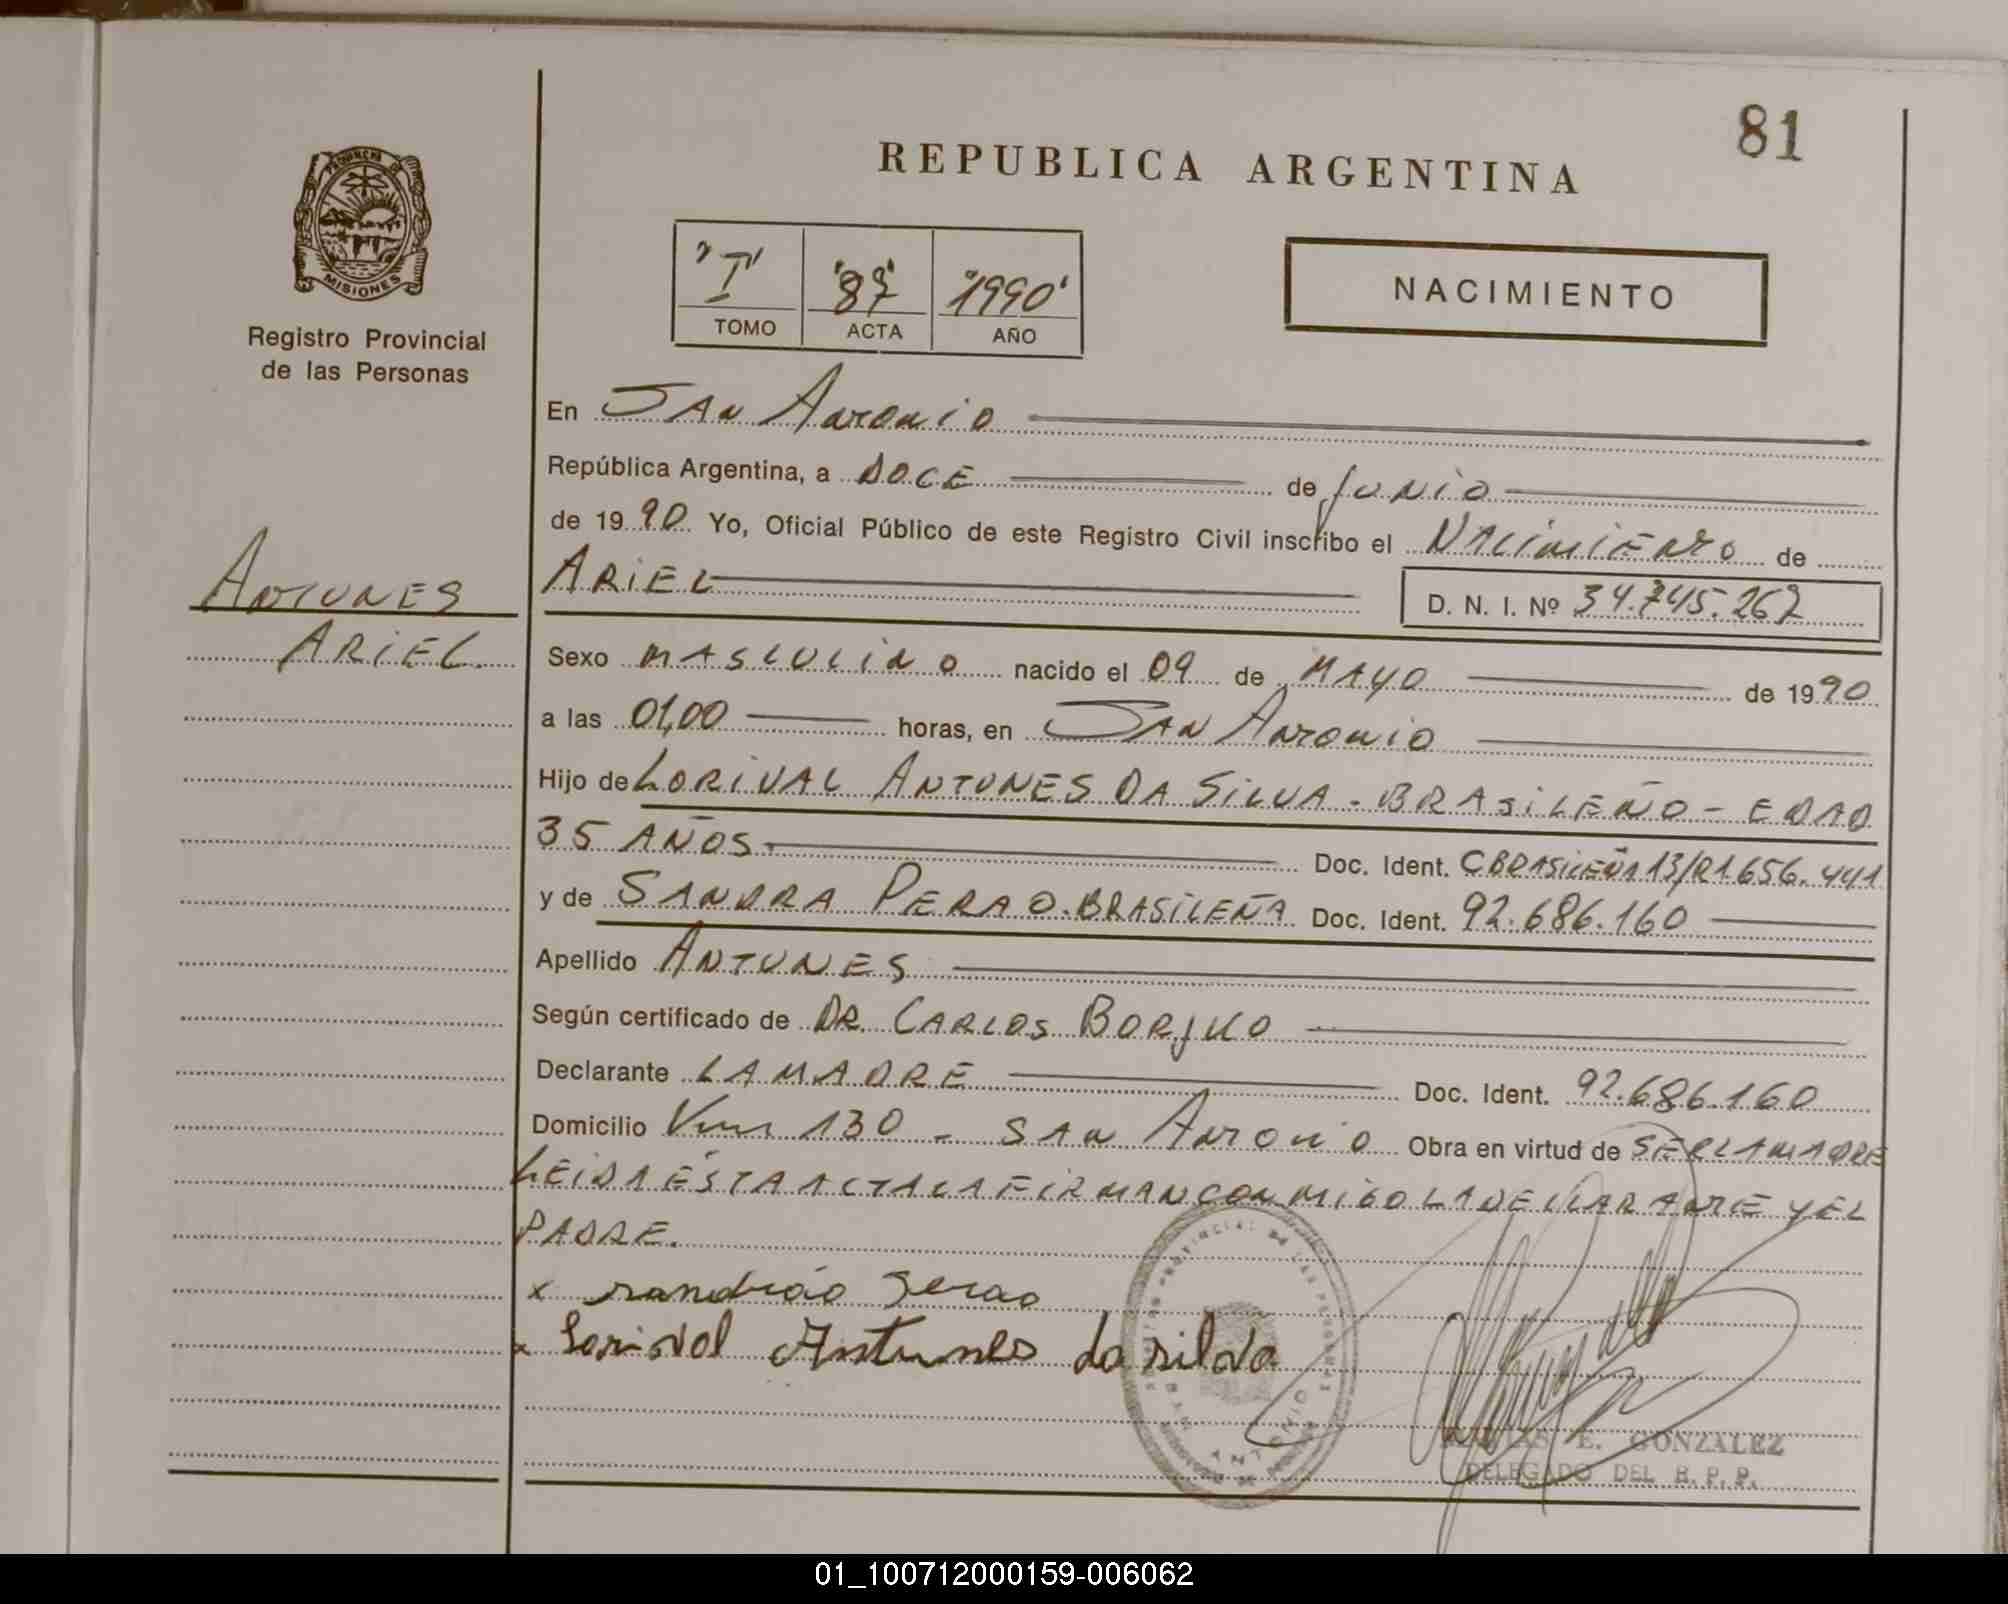 81
REPUBLICA ARGENTINA
PROVINCIA DE
MISIONES
Registro Provincial
de las Personas
"I" "87" "1990"
TOMO ACTA AÑO
NACIMIENTO
En SAN ANTONIO
República Argentina, a DOCE de JUNIO
de 1990 Yo, Oficial Público de este Registro Civil inscribo el NACIMIENTO de
ARIEL D. N. I. Nº 34.745.267
ANTUNES
ARIEL
Sexo MASCULINO nacido el 09 de MAYO de 1990
a las 01,00 horas, en SAN ANTONIO
Hijo de LORIVAL ANTUNES DA SILVA - BRASILEÑO - EDAD
35 AÑOS. Doc. Ident. C BRASILEÑA 13/R1.656.441
y de SANDRA PERAO. BRASILEÑA Doc. Ident. 92.686.160
Apellido ANTUNES
Según certificado de DR. CARLOS
Declarante LA MADRE Doc. Ident. 92.686.160
Domicilio 130 - SAN ANTONIO Obra en virtud de SER LA MADRE
LEIDA ESTA ACTA LA FIRMAN CONMIGO LA DECLARANTE Y EL
PADRE.
x
x Lorival Antunes da silva
SAN ANTONIO
E. GONZALEZ
DELEGADO DEL R. P. P.
01_100712000159-006062